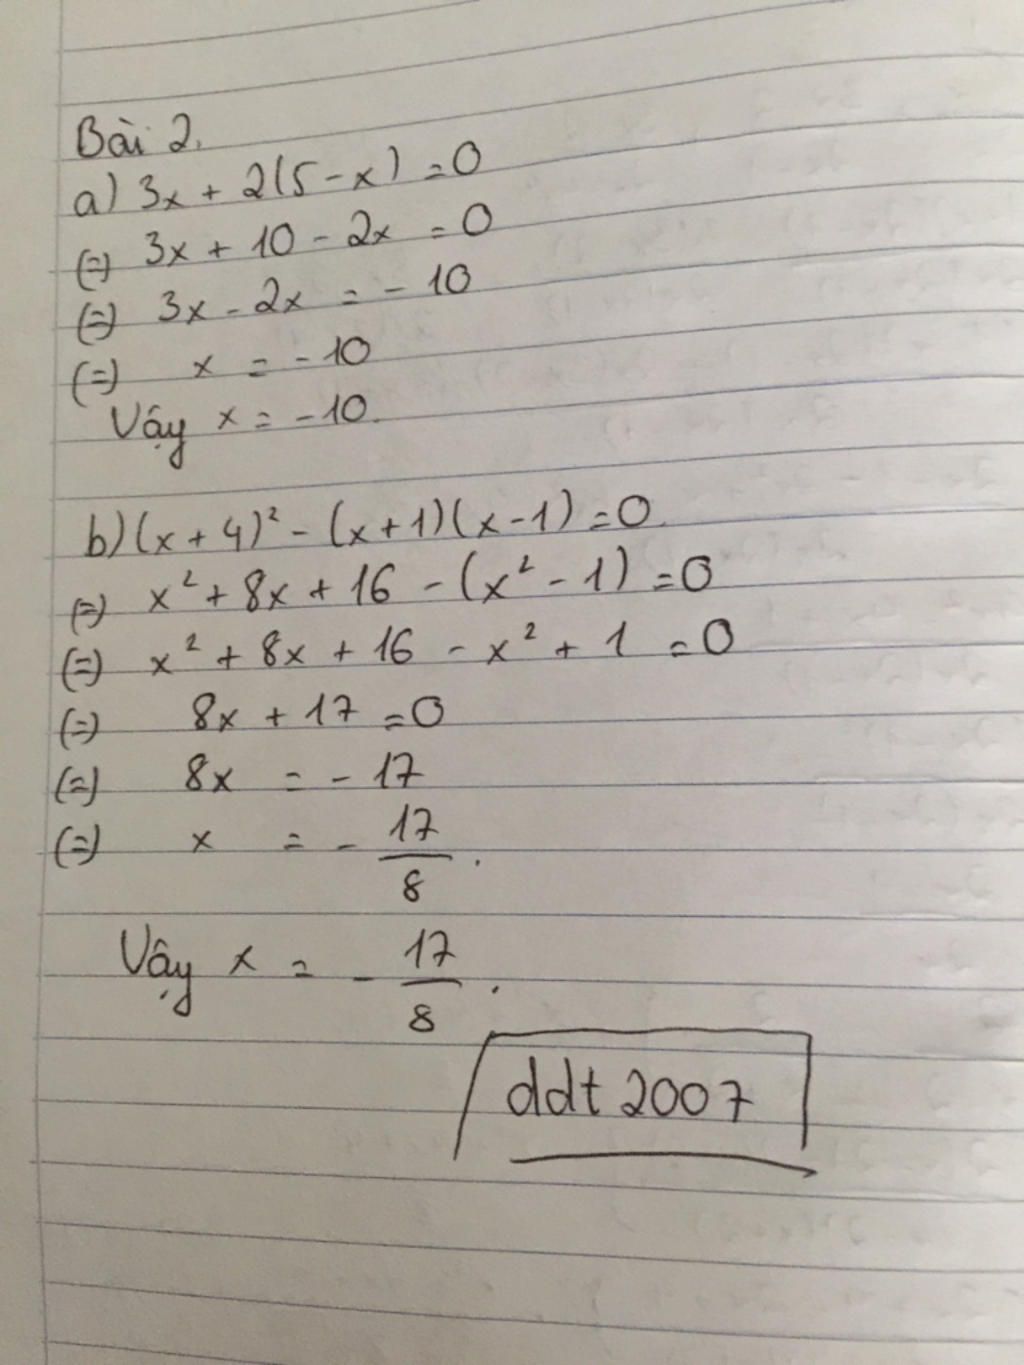 Bài 2.
a) 3x + 2(5 - x) = 0
(=) 3x + 10 - 2x = 0
(=) 3x - 2x = - 10
(=) x = - 10
Vậy x = - 10.
b) (x + 4)² - (x + 1)(x - 1) = 0
(=) x² + 8x + 16 - (x² - 1) = 0
(=) x² + 8x + 16 - x² + 1 = 0
(=) 8x + 17 = 0
(=) 8x = - 17
(=) x = - 17/8.
Vậy x = - 17/8.
ddt 2007